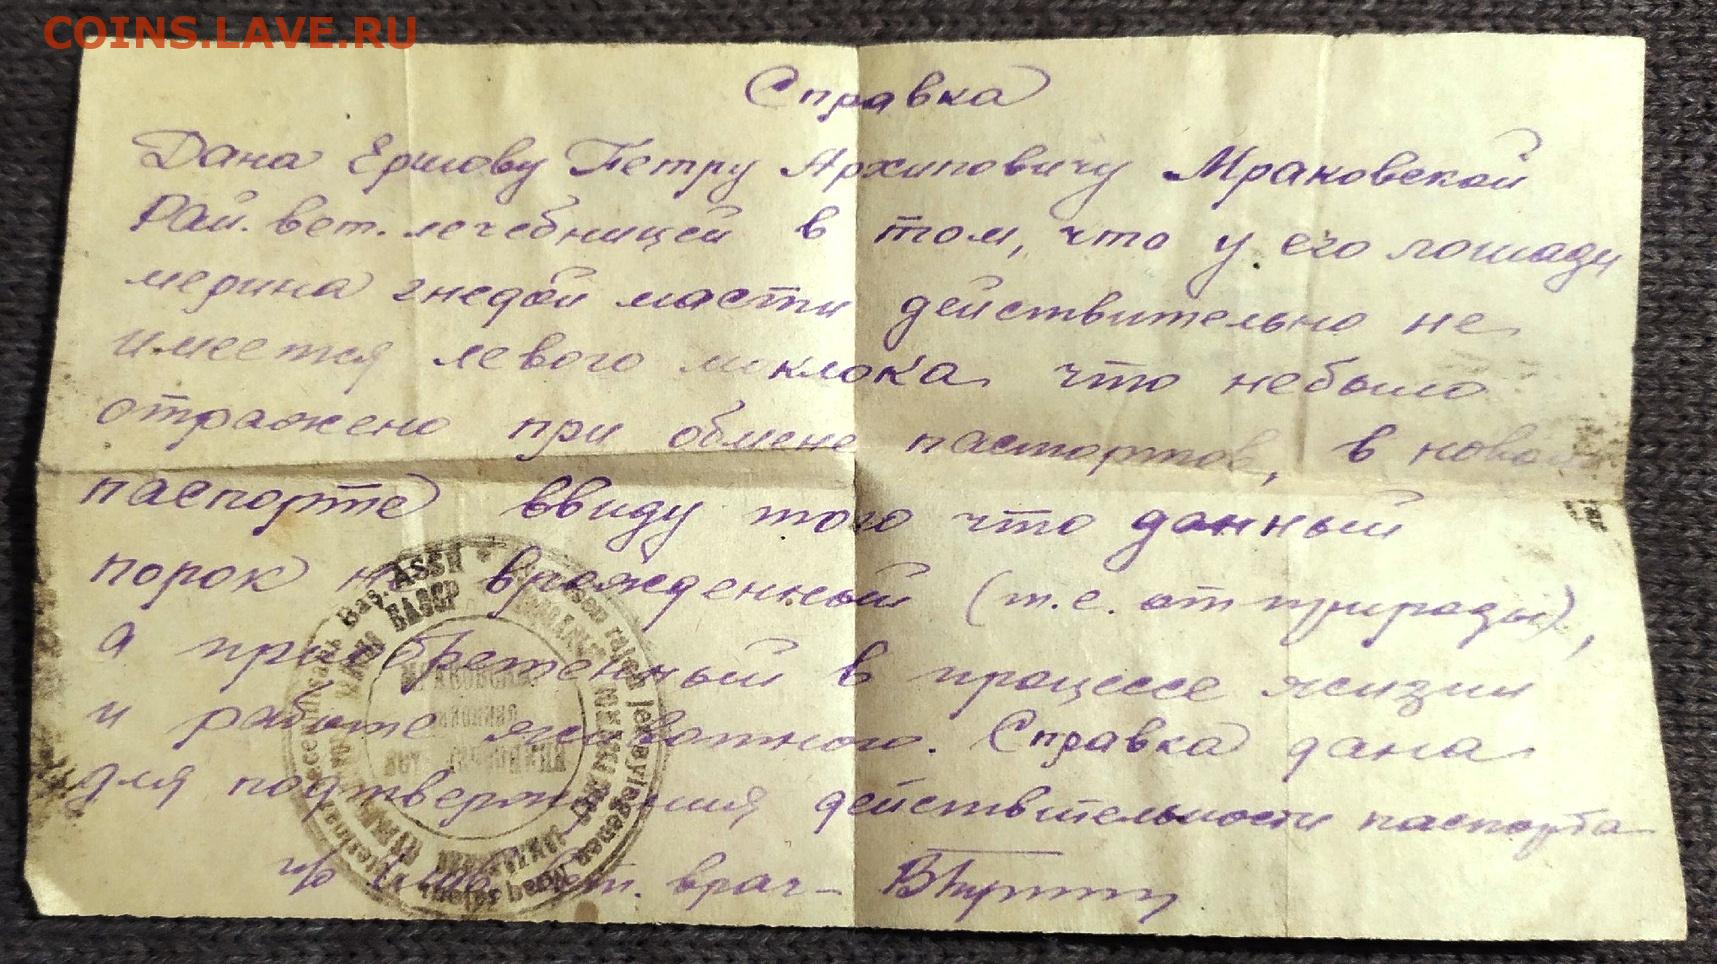 COINS.LAVE.RU
Справка
Дана Ершову Петру Архиповичу Мраковской
Рай. вет. лечебницей в том, что у его лошади
мерина гнедой масти действительно не
имеется левого маклока что небыло
отражено при обмене паспортов, в новом
паспорте ввиду того что данный
порок не врожденный (т.е. от природы),
а приобретенный в процессе жизни
и работе животного. Справка дана
для подтверждения действительности паспорта
вет. врач-
ASSR
БАССР